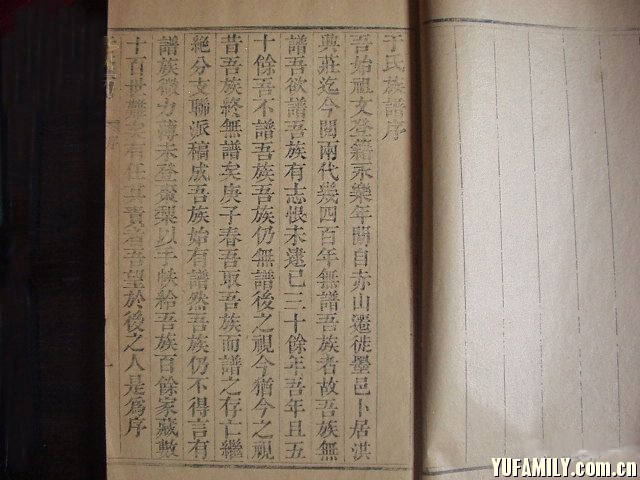 于氏族譜序
吾始祖文登籍永樂年間自赤山遷徙墨邑卜居洪
與莊迄今閱兩代幾四百年無譜吾族者故吾族無
譜吾欲譜吾族有志恨未逮已三十餘年吾年且五
十餘吾不譜吾族吾族仍無譜後之視今猶今之視
昔吾族終無譜矣庚子春吾取吾族而譜之存亡繼
絕分支聯派稿成吾族始有譜然吾族仍不得言有
譜族微力薄未登棗梨以手帙給吾族百餘家藏數
十百世難有任其責者吾望於後之人是為序
YUFAMILY.com.cn